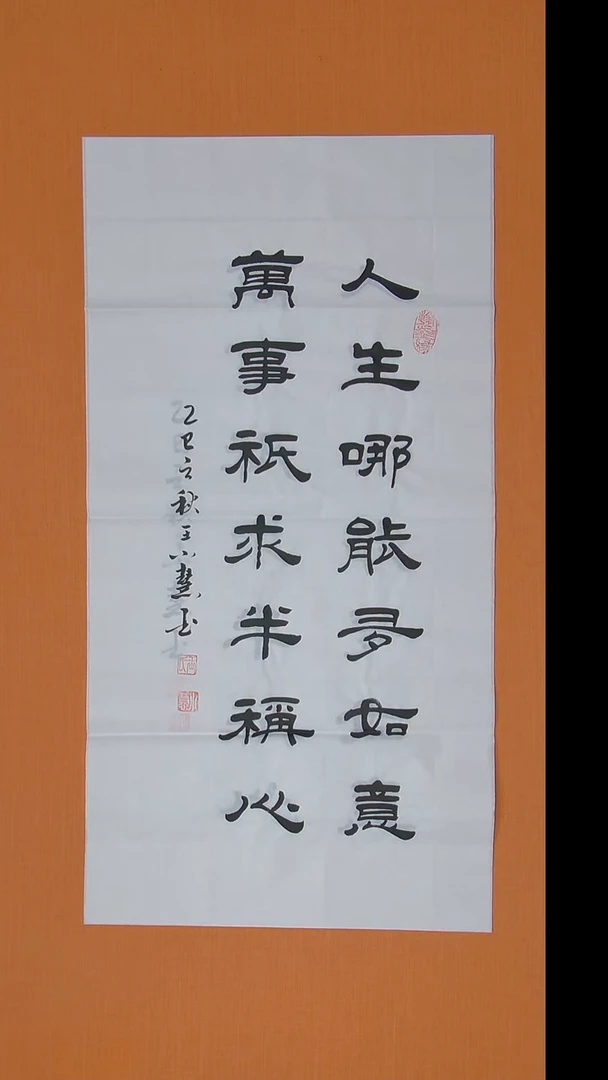 人生哪能多如意
萬事祇求半稱心
乙巳立秋王小慧書